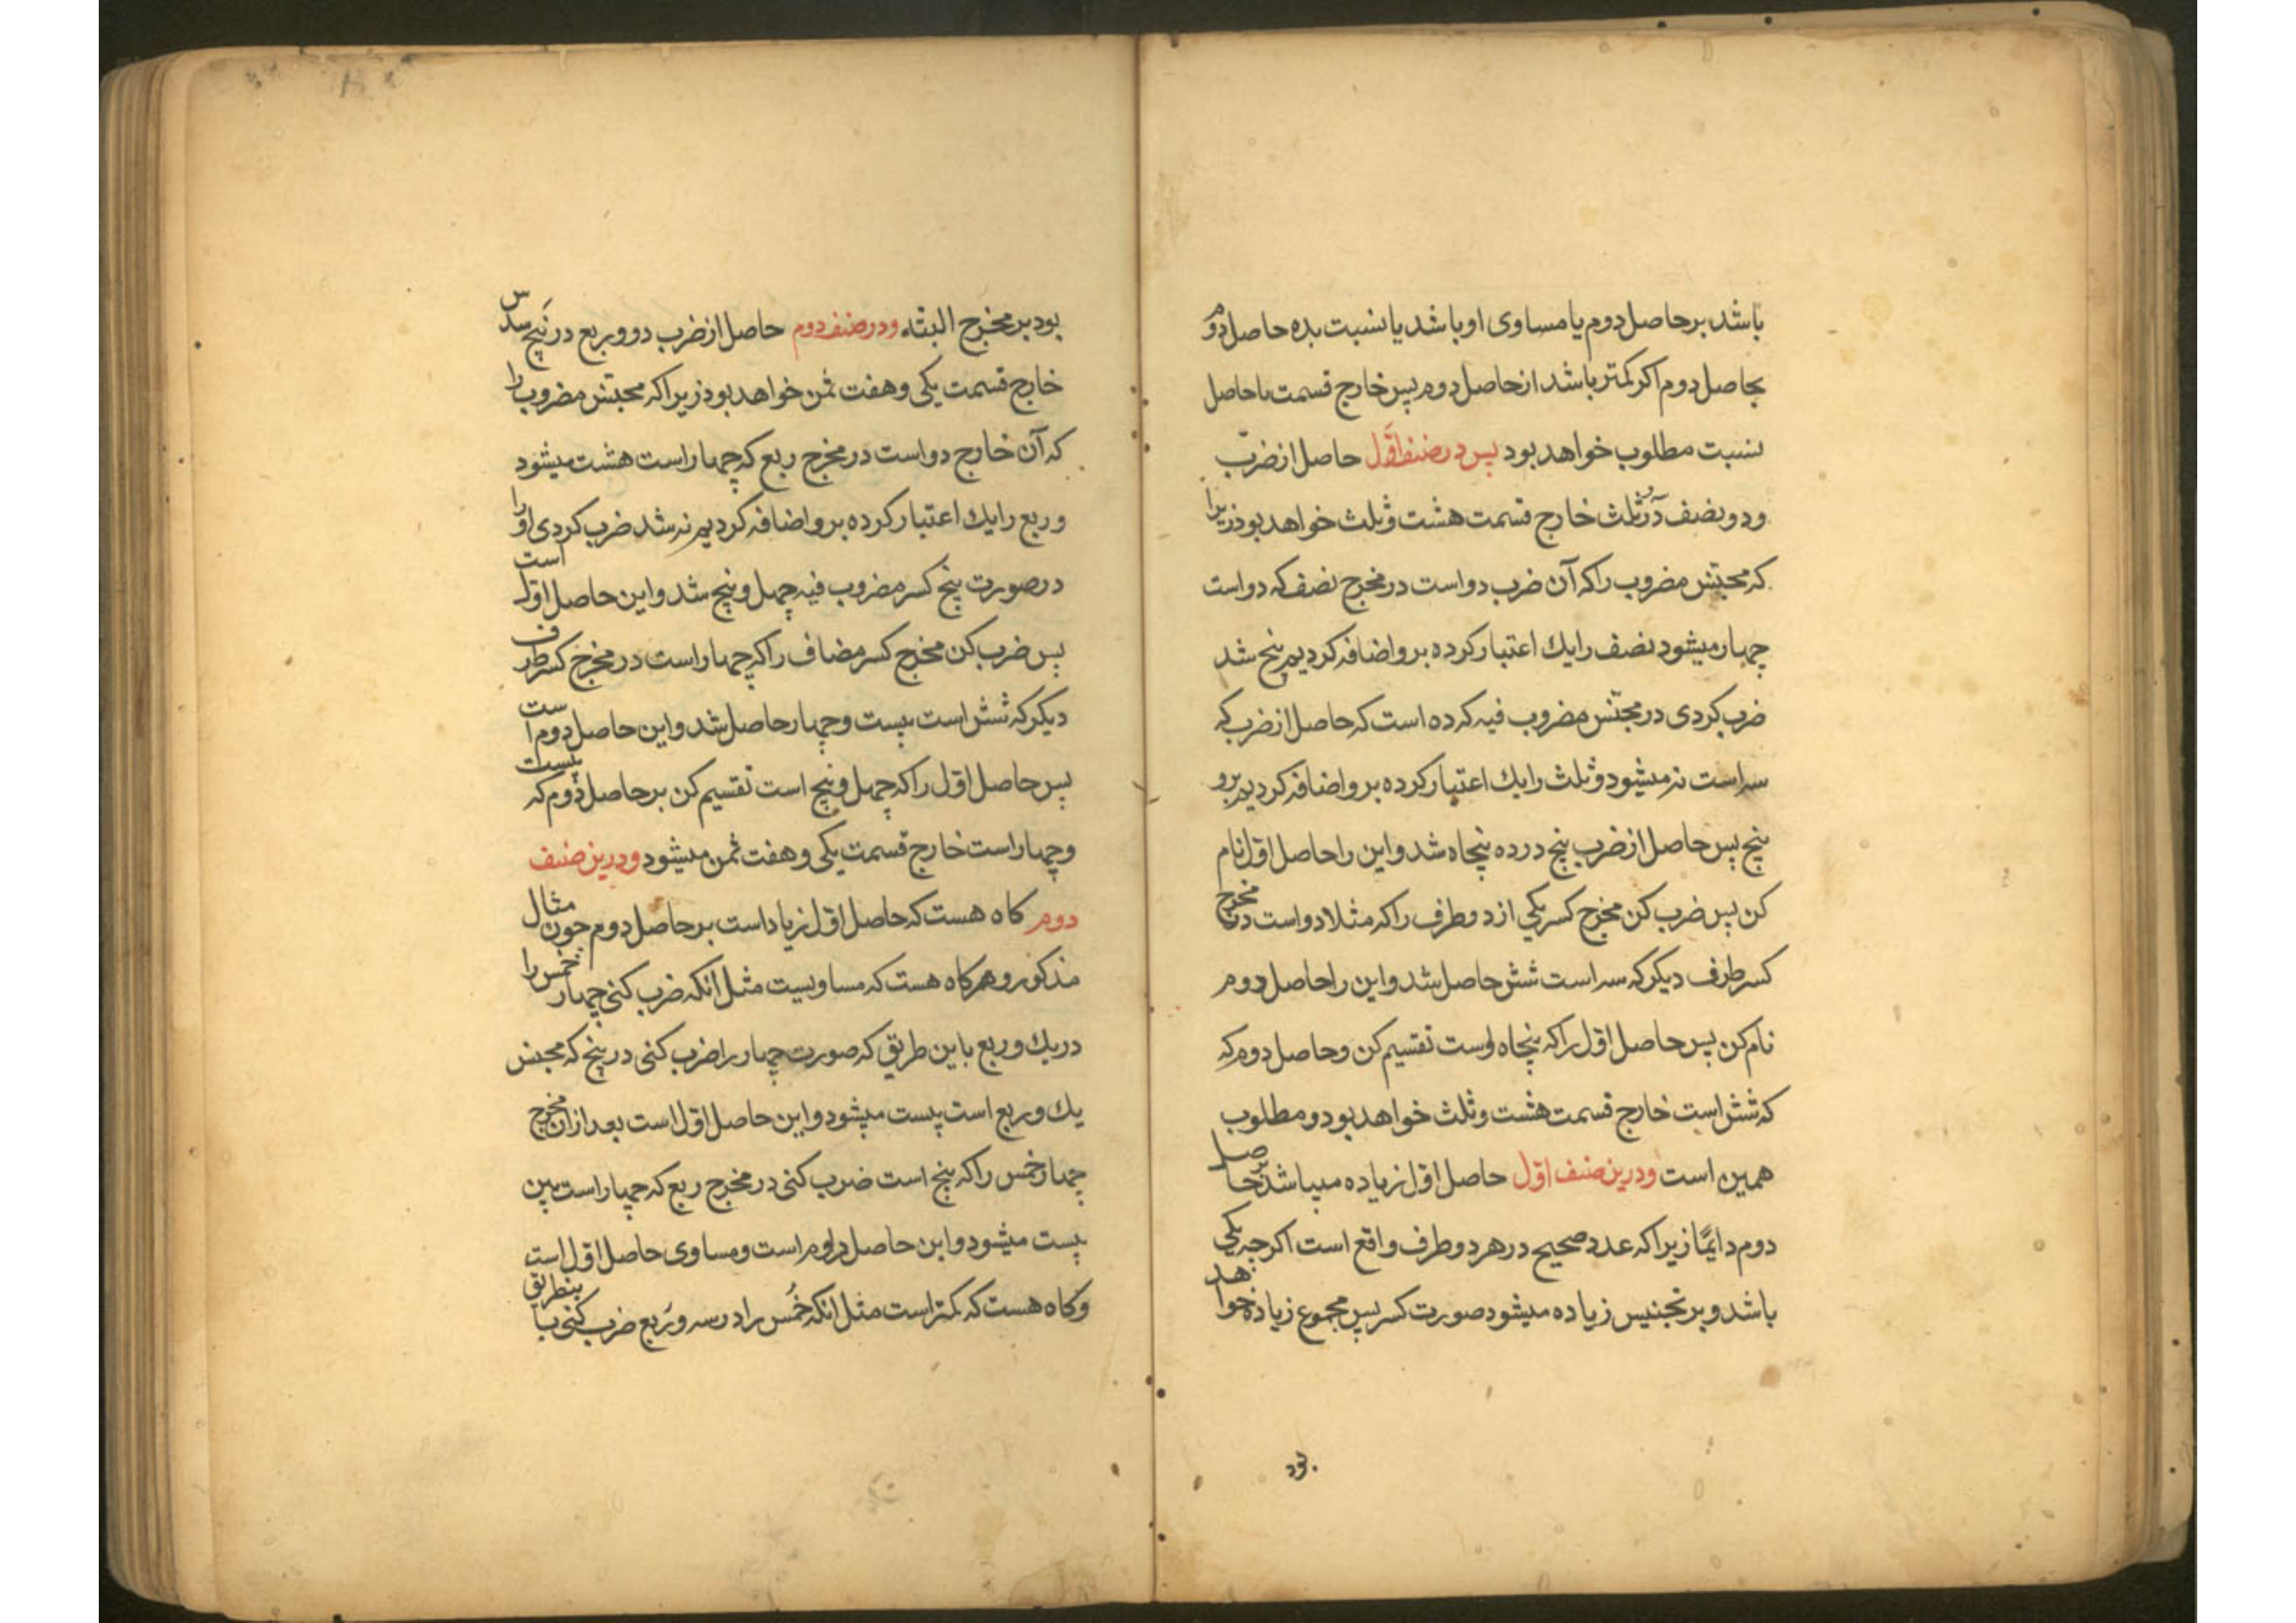 باشد بر حاصل دوم یا مساوی او باشد یا نسبت بده حاصل دوم
بحاصل دوم اکر کمتر باشد از حاصل دوم پس خارج قسمت یا حاصل
نسبت مطلوب خواهد بود پس در صنف اوّل حاصل از ضرب
ودو ونصف در ثلث خارج قسمت هشت وثلث خواهد بود زیرا
که مجنّس مضروب را که آن ضرب دو است در مخرج نصف که دو است
چهار میشود نصف را یك اعتبار کرده بر و اضافه کردیم پنج شد
ضرب کردی در مجنّس مضروب فیه که ده است که حاصل از ضرب که
سه است نه میشود وثلث را یك اعتبار کرده بر و اضافه کردیم برو
پنج پس حاصل از ضرب پنج در ده پنجاه شد واین را حاصل اوّل نام
کن پس ضرب کن مخرج کسر یکی از دو طرف را که مثلا دو است در مخرج
کسر طرف دیکر که سه است شش حاصل شد واین را حاصل دوم
نام کن پس حاصل اوّل را که پنجاه است تقسیم کن وحاصل دوم که
که شش است خارج قسمت هشت وثلث خواهد بود و مطلوب
همین است ودرین صنف اوّل حاصل اوّل زیاده میباشد بر حاصل
دوم دایمًا زیرا که عدد صحیح در هر دو طرف واقع است اکرچه یکی
باشد و بر تجنیس زیاده میشود صورت کسر پس مجموع زیاده خواهد
بود
بود بر مخرج البته ودر صنف دوم حاصل از ضرب دو وربع در پنج سدس
خارج قسمت یکی وهفت ثمن خواهد بود زیرا که مجنّس مضروب را
که آن خارج دو است در مخرج ربع که چهار است هشت میشود
وربع را یك اعتبار کرده بر و اضافه کردیم نه شد ضرب کردی او را
در صورت پنج کسر مضروب فیه چهل و پنج شد واین حاصل اوّل است
پس ضرب کن مخرج کسر مضاف را که چهار است در مخرج کسر طرف
دیکر که شش است بیست وچهار حاصل شد واین حاصل دوم است
پس حاصل اوّل را که چهل وپنج است تقسیم کن بر حاصل دوم که بیست
وچهار است خارج قسمت یکی وهفت ثمن میشود ودرین صنف
دوم کاه هست که حاصل اوّل زیاد است بر حاصل دوم چون مثال
مذکور وهر کاه هست که مساویست مثل انکه ضرب کنی چهار خمس را
در یك وربع باین طریق که صورت چهار را ضرب کنی در پنج که مجنس
یك وربع است بیست میشود واین حاصل اوّل است بعد ازان مخرج
چهار خمس را که پنج است ضرب کنی در مخرج ربع که چهار است پس
بیست میشود واین حاصل دوم است ومساوی حاصل اوّل است
وکاه هست که کمتر است مثل انکه خُمس را در سه ورَبع ضرب کنی باینطریق